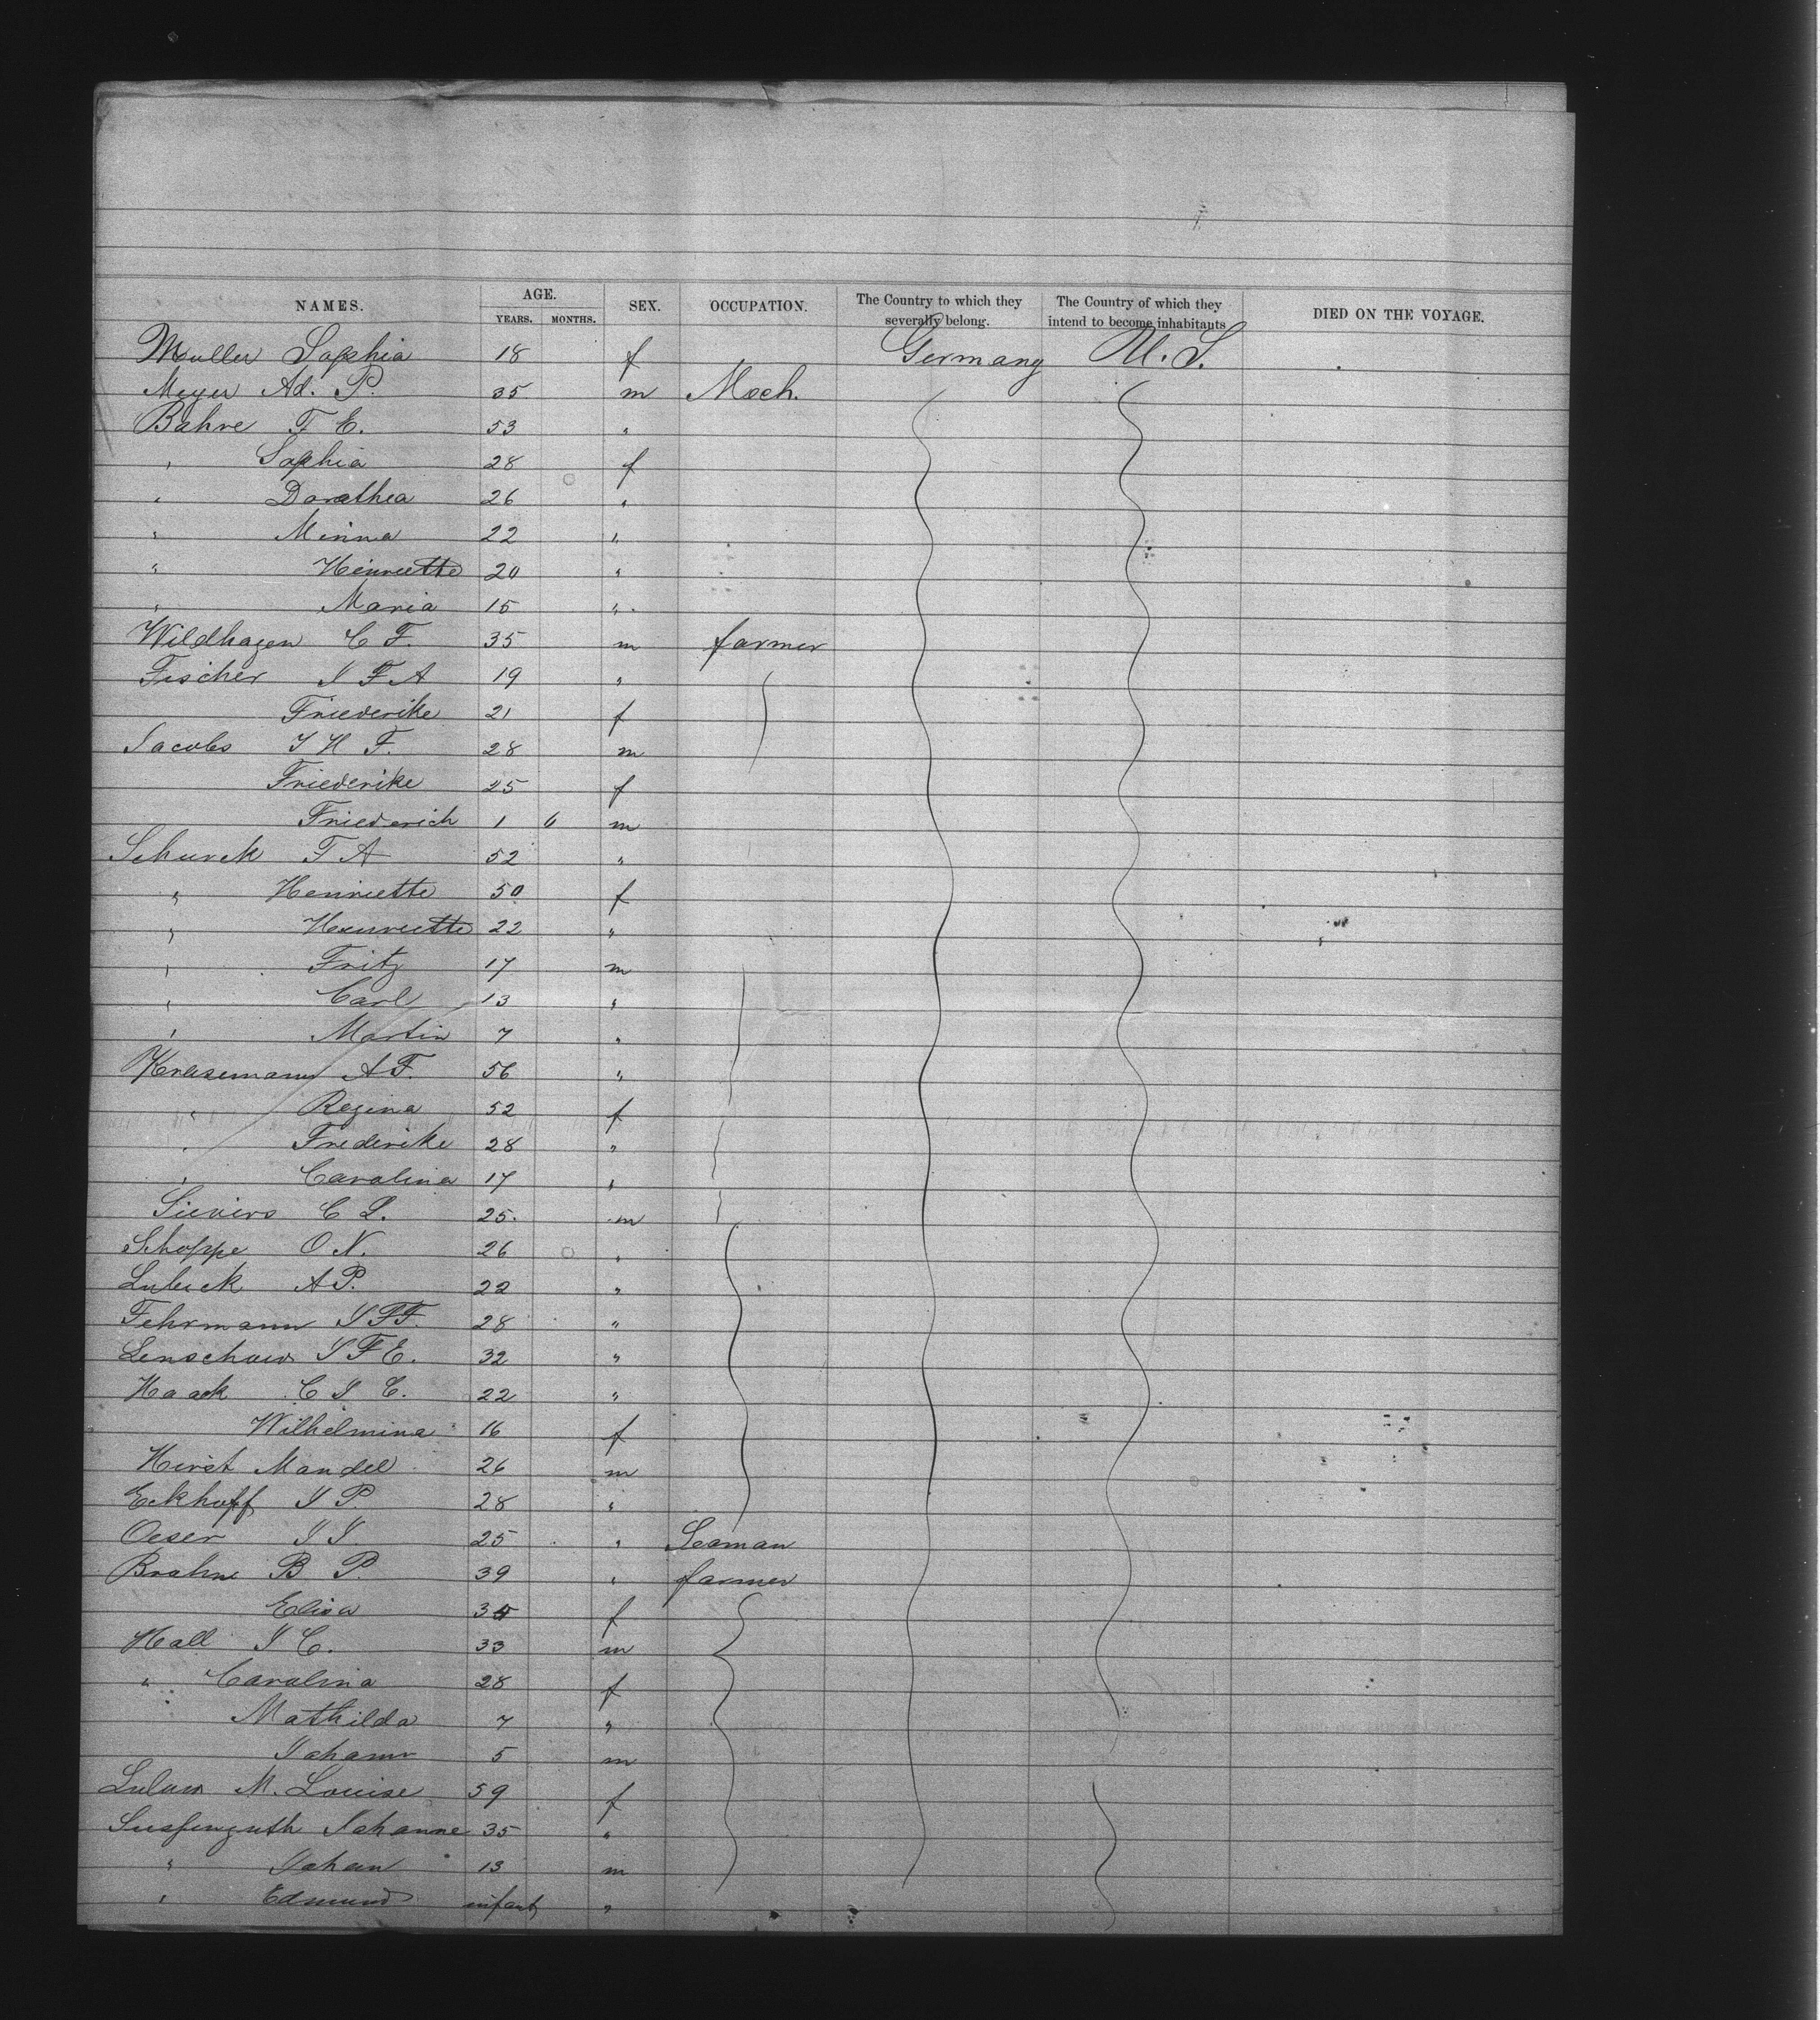 NAMES. AGE. YEARS. MONTHS. SEX. OCCUPATION. The Country to which they severally belong. The Country of which they intend to become inhabitants DIED ON THE VOYAGE.
Muller Sophia 18 f Germany U. S.
Meyer Ad. P. 35 m Mech.
Bahre F E. 53 "
" Sophia 28 f
" Dorathea 26 "
" Minna 22 "
" Henriette 20 "
" Maria 15 "
Wildhagen C F. 35 m farmer
Fischer J F A 19 "
Friederike 21 f
Jacobs J H F. 28 m
Friederike 25 f
Friederich 1 6 m
Schurck F A 52 "
" Henriette 50 f
" Henriette 22 "
" Fritz 17 m
" Carl 13 "
" Martin 7 "
Krasemann A F. 56 "
" Regina 52 f
" Frederike 28 "
" Carolina 17 "
Sievers C L. 25 m
Schoppe O N. 26 "
Lubeck A P. 22 "
Fehrmann J F F. 28 "
Lenschow J F E. 32 "
Haack C J C. 22 "
Wilhelmina 16 f
Hirst Mandel 26 m
Eckhoff J P. 28 "
Oeser J J. 25 " Seaman
Brahm B P. 39 " farmer
Elisa f
Hall J C. 33 m
" Carolina 28 f
Mathilda 7 "
Johann 5 m
M. Louise 59 f
Johanne 35 "
" Johan 13 m
" Edmund infant "